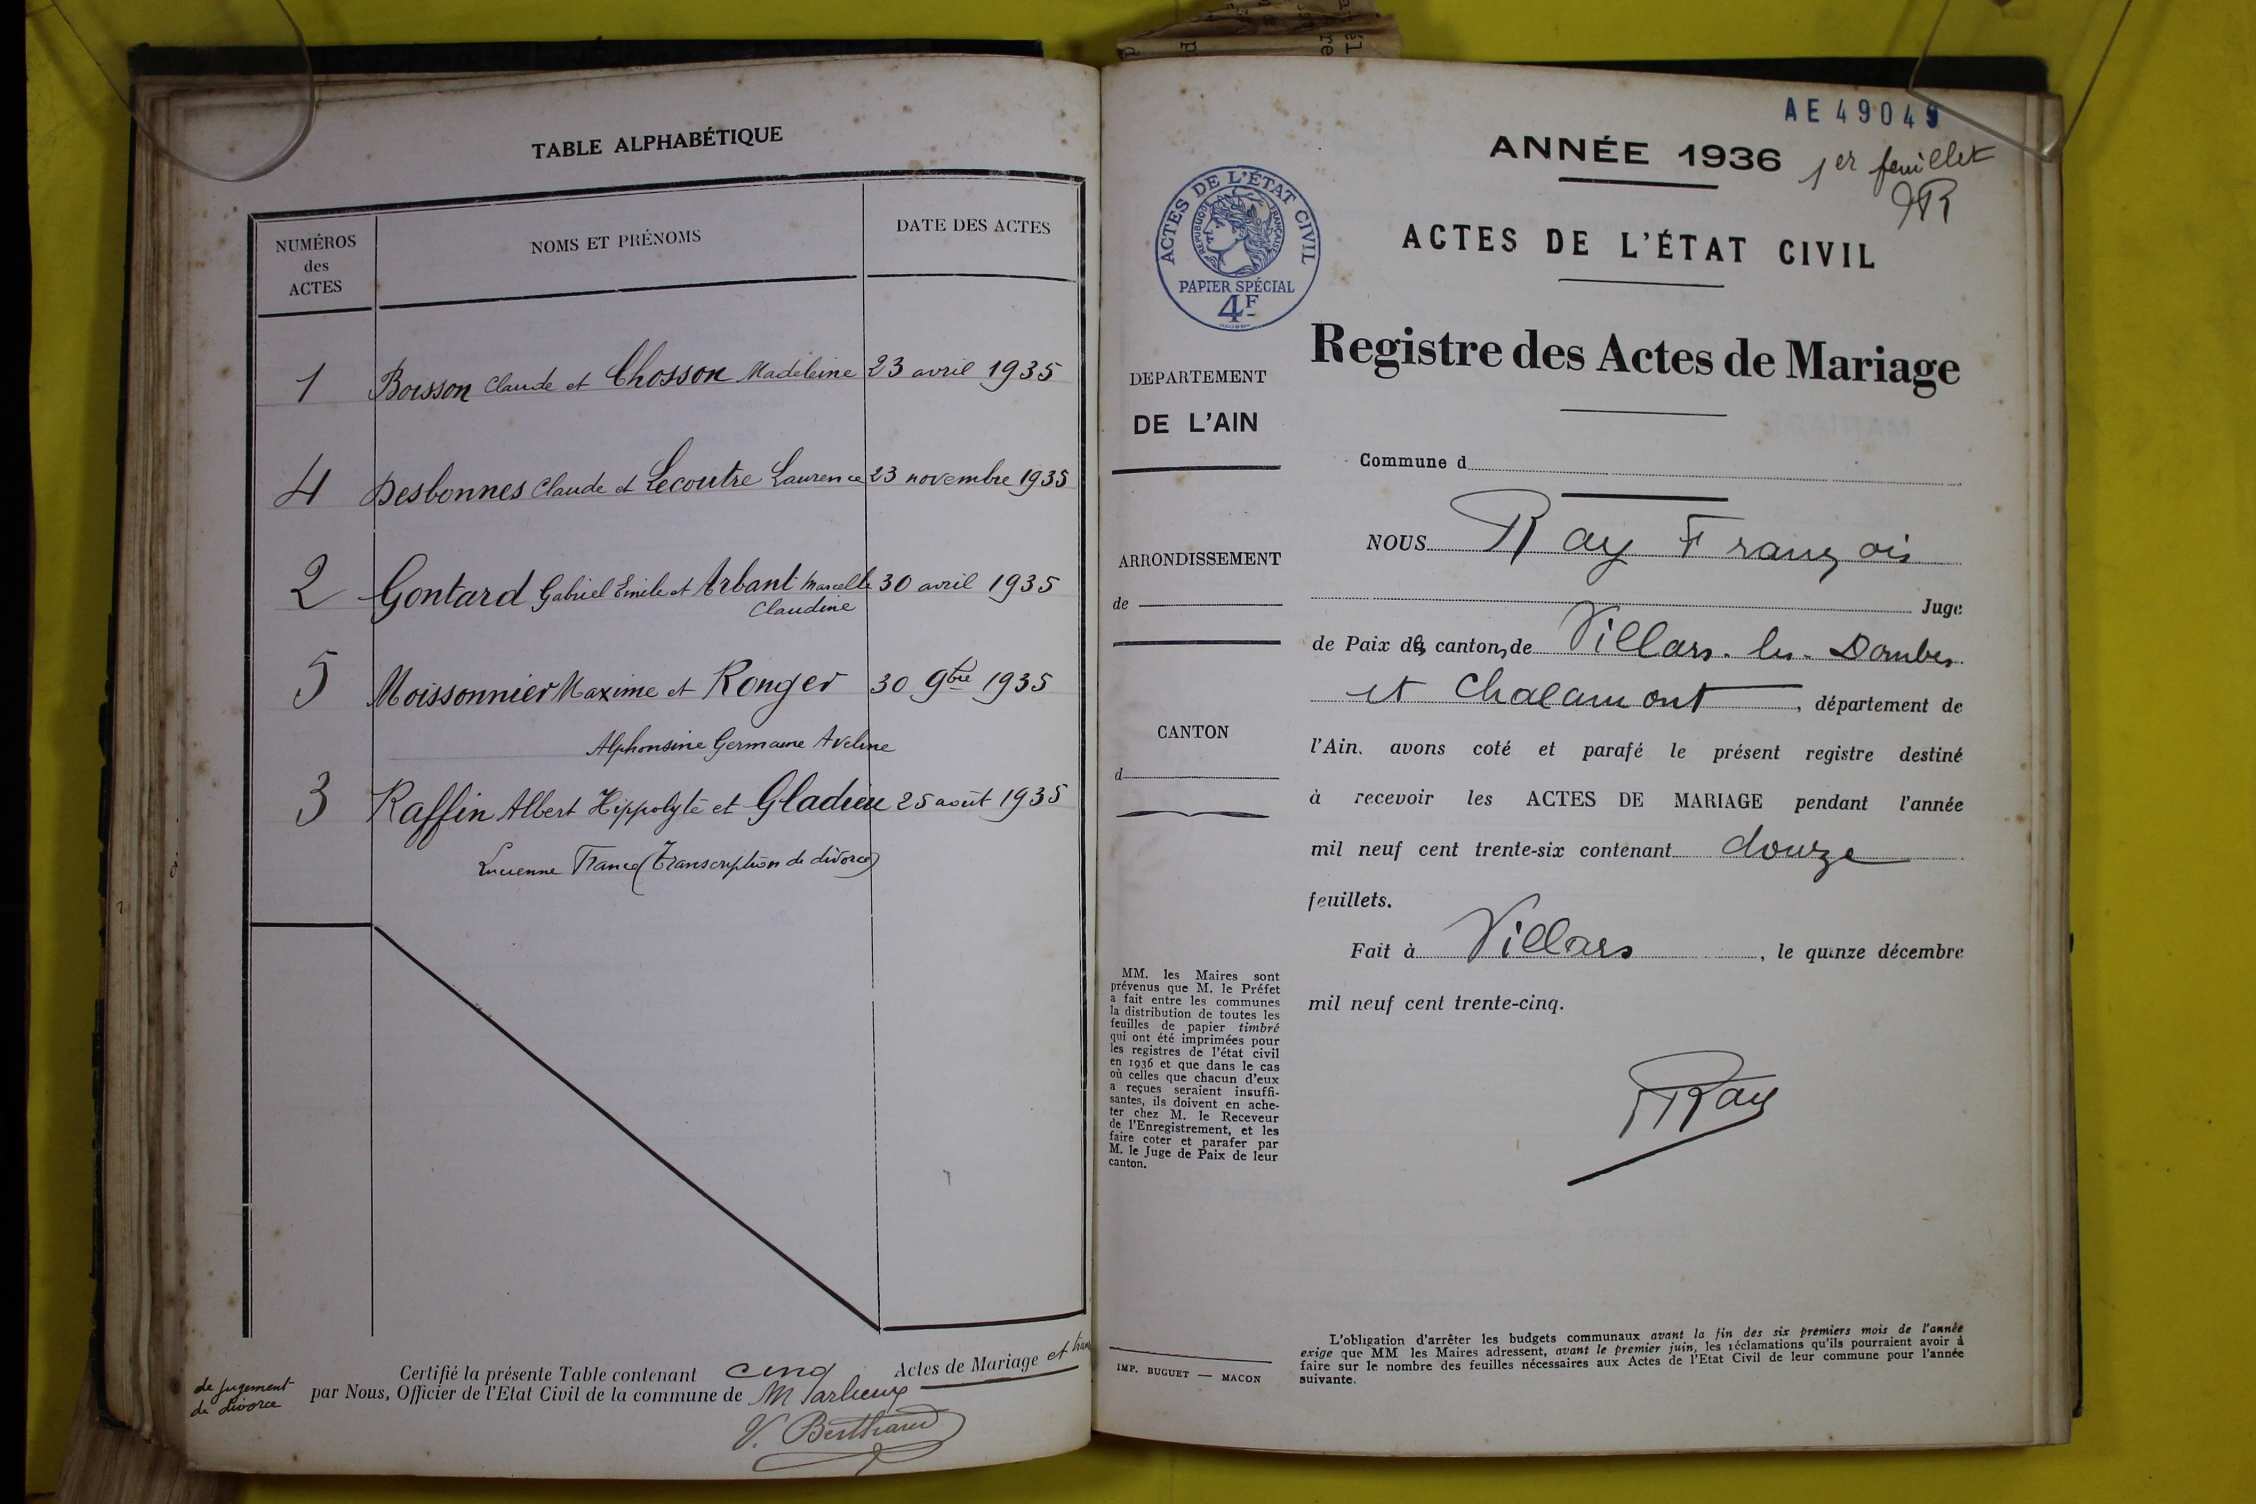 TABLE ALPHABÉTIQUE
NUMÉROS
des
ACTES
NOMS ET PRÉNOMS
DATE DES ACTES
1 Boisson Claude et Chosson Madeleine 23 avril 1935
4 Desbonnes Claude et Lecoutre Laurence 23 novembre 1935
2 Gontard Gabriel Emile et Arbant Marcelle 30 avril 1935
Claudine
5 Moissonnier Maxime et Ronger 30 9bre 1935
Alphonsine Germaine Aveline
3 Raffin Albert Hippolyte et Gladieu 25 août 1935
Lucienne France (Transcription de divorce)
Certifié la présente Table contenant cinq Actes de Mariage et
de jugement
de divorce
par Nous, Officier de l'Etat Civil de la commune de Marlieux
V. Berthaud
AE 49049
ANNÉE 1936
1er feuillet
FR
ACTES DE L'ÉTAT CIVIL
RÉPUBLIQUE FRANÇAISE
PAPIER SPÉCIAL
4F
ACTES DE L'ÉTAT CIVIL
Registre des Actes de Mariage
DEPARTEMENT
DE L'AIN
ARRONDISSEMENT
de
CANTON
d
Commune d
NOUS Ray François
Juge
de Paix des cantons de Villars-les-Dombes
et Chalamont, département de
l'Ain. avons coté et parafé le présent registre destiné
à recevoir les ACTES DE MARIAGE pendant l'année
mil neuf cent trente-six contenant douze
feuillets.
Fait à Villars, le quinze décembre
mil neuf cent trente-cinq.
FRay
MM. les Maires sont
prévenus que M. le Préfet
a fait entre les communes
la distribution de toutes les
feuilles de papier timbré
qui ont été imprimées pour
les registres de l'état civil
en 1936 et que dans le cas
où celles que chacun d'eux
a reçues seraient insuffi-
santes, ils doivent en ache-
ter chez M. le Receveur
de l'Enregistrement, et les
faire coter et parafer par
M. le Juge de Paix de leur
canton.
IMP. BUGUET — MACON
L'obligation d'arrêter les budgets communaux avant la fin des six premiers mois de l'année
exige que MM les Maires adressent, avant le premier juin, les réclamations qu'ils pourraient avoir à
faire sur le nombre des feuilles nécessaires aux Actes de l'Etat Civil de leur commune pour l'année
suivante.